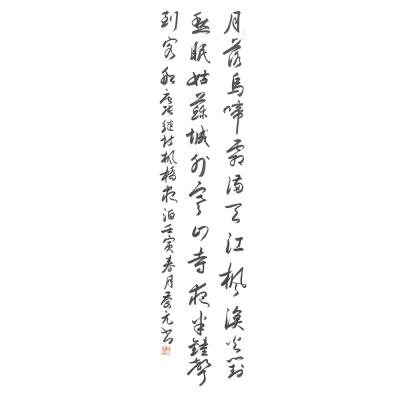 月落烏啼霜滿天江楓漁火對
愁眠姑蘇城外寒山寺夜半鐘聲
到客船唐張継詩楓橋夜泊壬寅春月元书